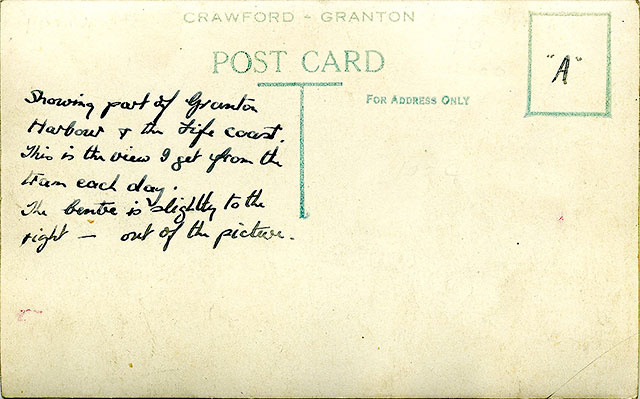 CRAWFORD - GRANTON
POST CARD
FOR ADDRESS ONLY
"A"
Showing part of Granton
Harbour & the Fife coast.
This is the view I get from the
tram each day.
The Centre is slightly to the
right — out of the picture.